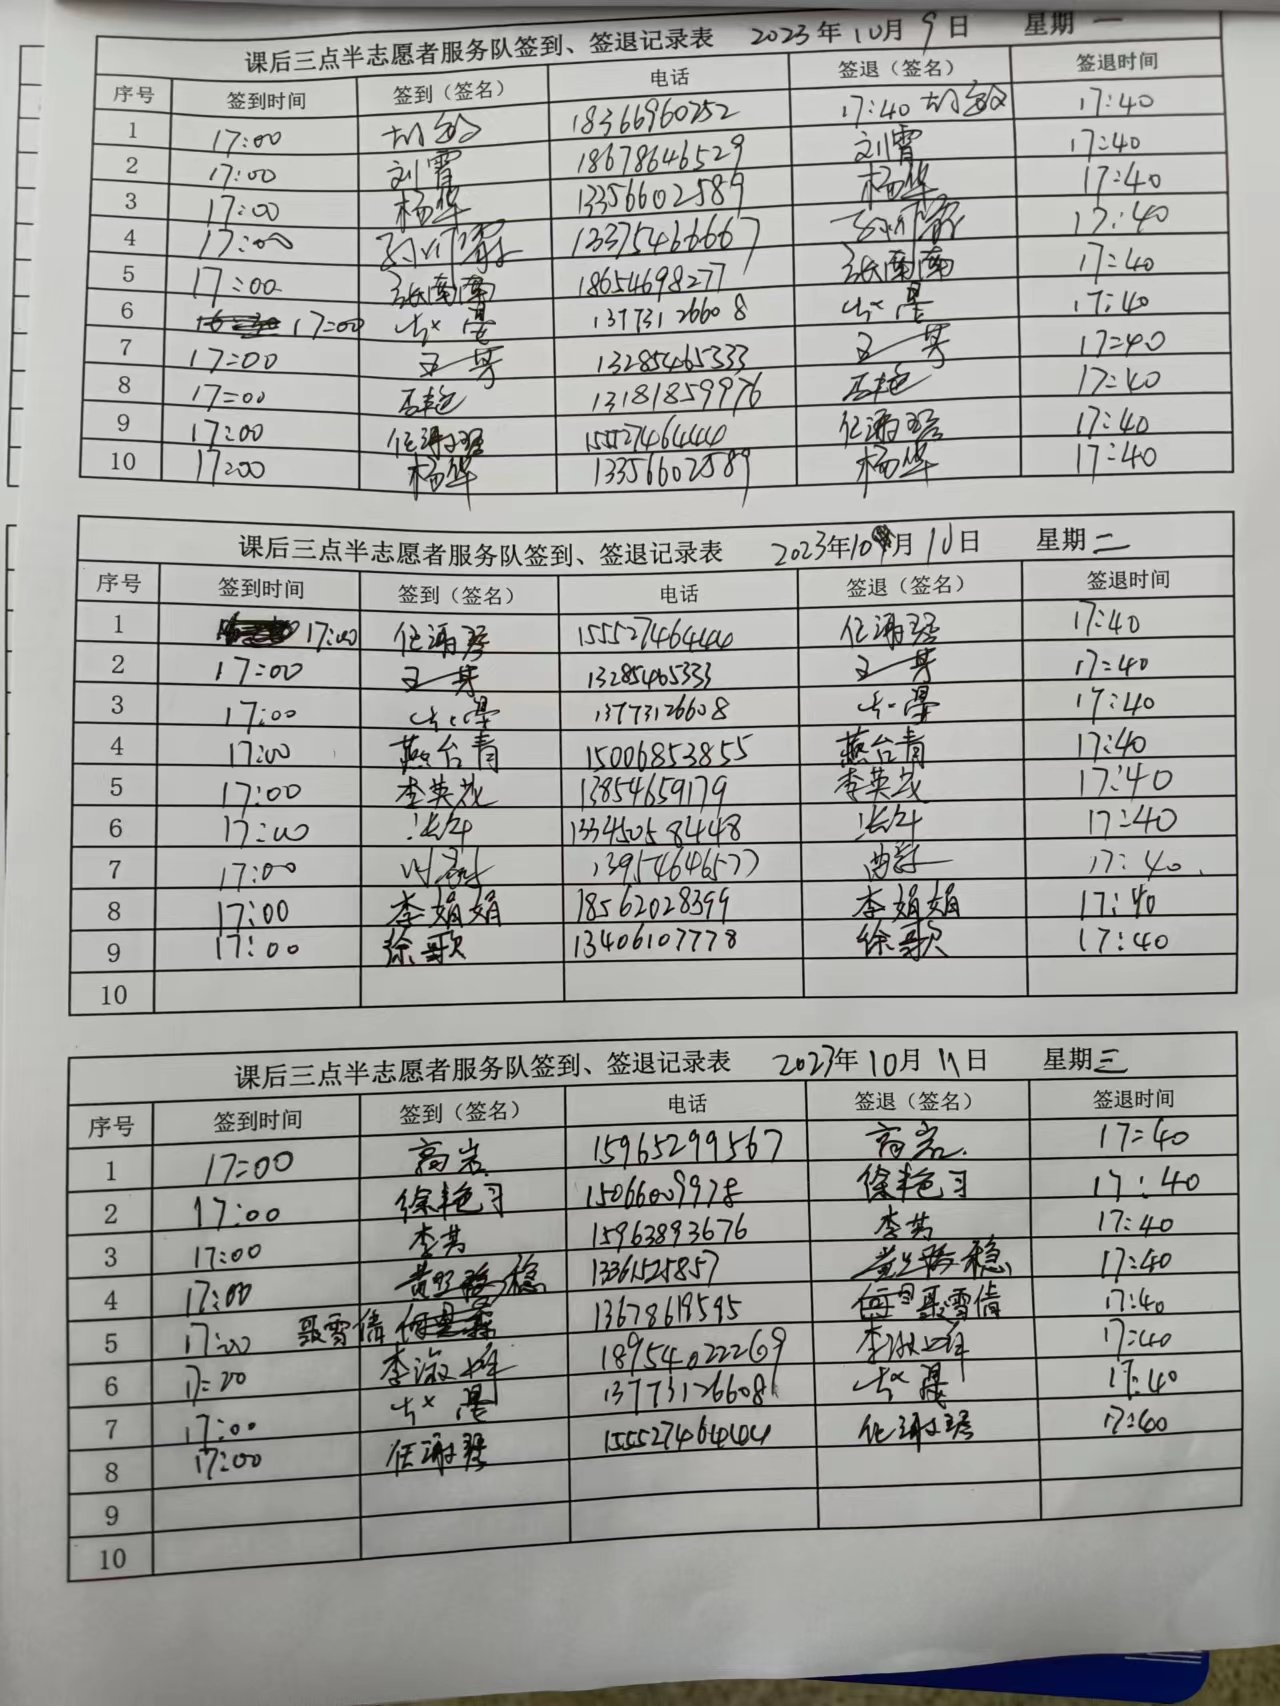 课后三点半志愿者服务队签到、签退记录表 2023年10月9日 星期一
序号 签到时间 签到（签名） 电话 签退（签名） 签退时间
1 17:00 胡敏 18366960252 17:40 胡敏 17:40
2 17:00 刘霄 18678646529 刘霄 17:40
3 17:00 杨华 13356602589 杨华 17:40
4 17:00 13375466667 17:40
5 17:00 张南南 18654698277 张南南 17:40
6 17:00 13773126608 17:40
7 17:00 王一芳 13285465333 王一芳 17:40
8 17:00 孟艳 13181859976 孟艳 17:40
9 17:00 任海琴 15552746444 任海琴 17:40
10 17:00 杨华 13356602589 杨华 17:40
课后三点半志愿者服务队签到、签退记录表 2023年10月10日 星期二
序号 签到时间 签到（签名） 电话 签退（签名） 签退时间
1 17:00 任海琴 155527464444 任海琴 17:40
2 17:00 王一芳 13285465333 王一芳 17:40
3 17:00 13773126608 17:40
4 17:00 燕台青 15006853855 燕台青 17:40
5 17:00 李英茂 13854659179 李英茂 17:40
6 17:00 13345058448 17:40
7 17:00 13954646577 17:40
8 17:00 李娟娟 18562028399 李娟娟 17:40
9 17:00 徐歌 13406107778 徐歌 17:40
10
课后三点半志愿者服务队签到、签退记录表 2023年10月11日 星期三
序号 签到时间 签到（签名） 电话 签退（签名） 签退时间
1 17:00 高岩 15965299567 高岩 17:40
2 17:00 徐艳习 15066009978 徐艳习 17:40
3 17:00 李芳 15963893676 李芳 17:40
4 17:00 稳 13361525857 稳 17:40
5 17:00 聂雪倩 13678619595 聂雪倩 17:40
6 17:00 李淑婷 18954022269 李淑婷 17:40
7 17:00 13773126608 17:40
8 17:00 任海琴 15552746444 任海琴 17:40
9
10